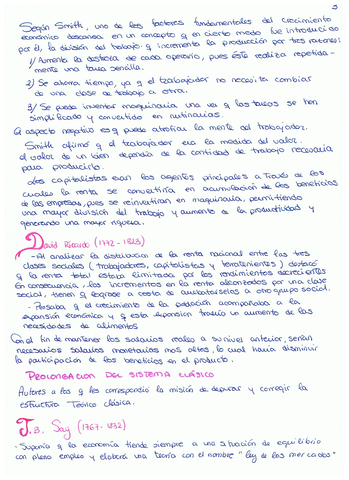 5
Según Smith, uno de los factores fundamentales del crecimiento
económico descansa en un concepto q en cierto modo fue introducido
por él, la división del trabajo q incrementa la producción por tres razones:
1/ Aumenta la destreza de cada operario, pues éste realiza repetida-
mente una tarea sencilla.
2/ Se ahorra tiempo, ya q el trabajador no necesita cambiar
de una clase de trabajo a otra.
3/ Se puede inventar maquinaria una vez q las tareas se han
simplificado y convertido en rutinarias.
El aspecto negativo es q puede atrofiar la mente del trabajador.
Smith afirmó q el trabajador era la medida del valor.
el valor de un bien dependía de la cantidad de trabajo necesaria
para producirlo.
Los capitalistas eran los agentes principales a través de los
cuales la renta se convertiría en acumulación de los beneficios
de las empresas, pues se reinvertirían en maquinaria, permitiendo
una mayor división del trabajo y aumento de la productividad y
generando una mayor riqueza.
David Ricardo (1772-1823)
- Al analizar la distribución de la renta nacional entre las tres
clases sociales (trabajadores, capitalistas y terratenientes) destacó
q la renta total estaba limitada por los rendimientos decrecientes
En consecuencia, los incrementos en la renta alcanzados por una clase
social, tienen q lograse a costa de quitárselos a otro grupo social.
- Pensaba q el crecimiento de la población acompañaba a la
expansión económica y q esta expansión traería un aumento de las
necesidades de alimentos
Con el fin de mantener los salarios reales a su nivel anterior, serían
necesarios salarios monetarios más altos, lo cual haría disminuir
la participación de los beneficios en el producto.
PROLONGACIÓN DEL SISTEMA CLÁSICO
Autores a los q les correspondió la misión de depurar y corregir la
estructura Teórica clásica.
J. B. Say (1767-1832)
- Suponía q la economía tiende siempre a una situación de equilibrio
con pleno empleo y elaboró una teoría con el nombre "ley de los mercados"